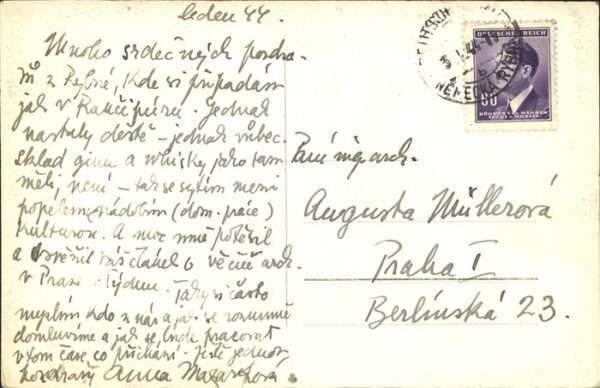 leden 44.
Mnoho srdečných pozdra-
vů z Rybné, kde si připadám
jak v Rančipúru. Jednak
nastaly deště – jednak vůbec
sklad ginu a whisky, jako tam
měli, není – tak se sytím mezi
popelem, nádobím (dom. práce)
kulturou. A moc mně potěšil
a osvěžil váš článek o věčné arch.
v Praz. Týdnu. Taky si často
myslím kdo z nás a jak se rozumně
domluvíme a jak se bude pracovat
v tom čase co přichází. Ještě jednou
pozdravy Anna
DEUTSCHES REICH
60
BÖHMEN UND MÄHREN
ČECHY A MORAVA
NĚMECKÁ RYBNÁ
Paní ing arch.
Augusta Müllerová
Praha I
Berlínská 23.